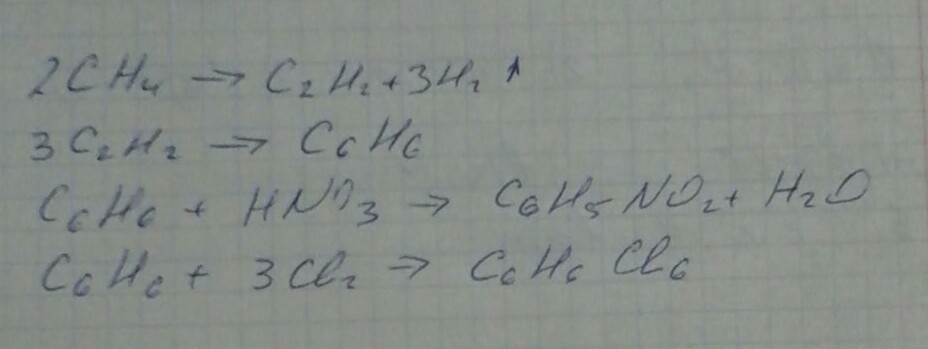 2CH₄ → C₂H₂+3H₂↑
3C₂H₂ → C₆H₆
C₆H₆ + HNO₃ → C₆H₅NO₂+ H₂O
C₆H₆ + 3Cl₂ → C₆H₆Cl₆